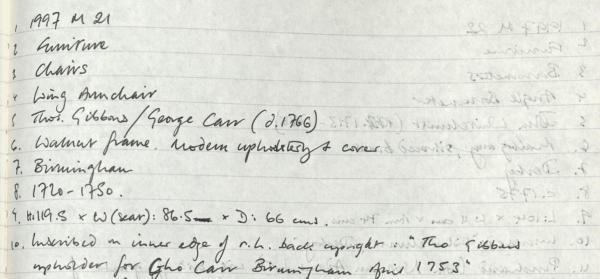 1. 1997 M 21
2 Furniture
3 Chairs
4 Wing Armchair
5 Thos. Gibbons/George Carr (d.1766)
6. Walnut frame. Modern upholstery & cover.
7. Birmingham
8. 1720-1750.
9. H:119.5 × W (seat): 86.5 × D: 66 cms.
10. Inscribed on inner edge of r.h. back upright: "Tho Gibbons
upholder for Gho Carr Birmingham April 1753"